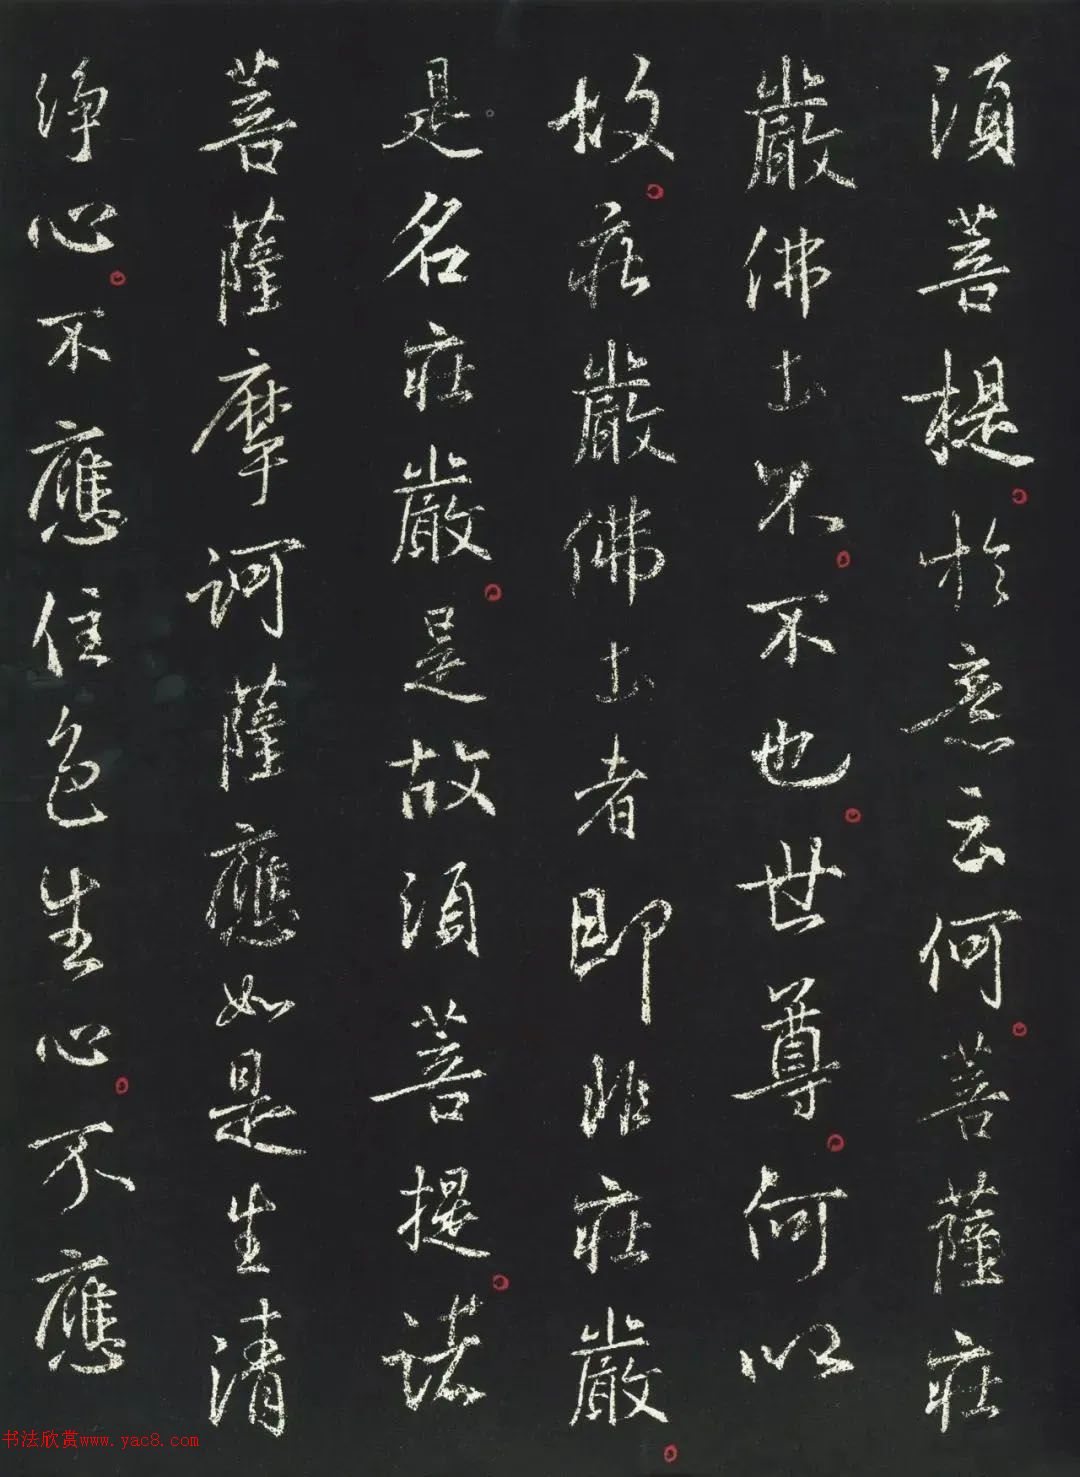 須菩提於意云何菩薩莊
嚴佛土不不也世尊何以
故莊嚴佛土者即非莊嚴
是名莊嚴是故須菩提諸
菩薩摩訶薩應如是生清
淨心不應住色生心不應
书法欣赏www.yac8.com